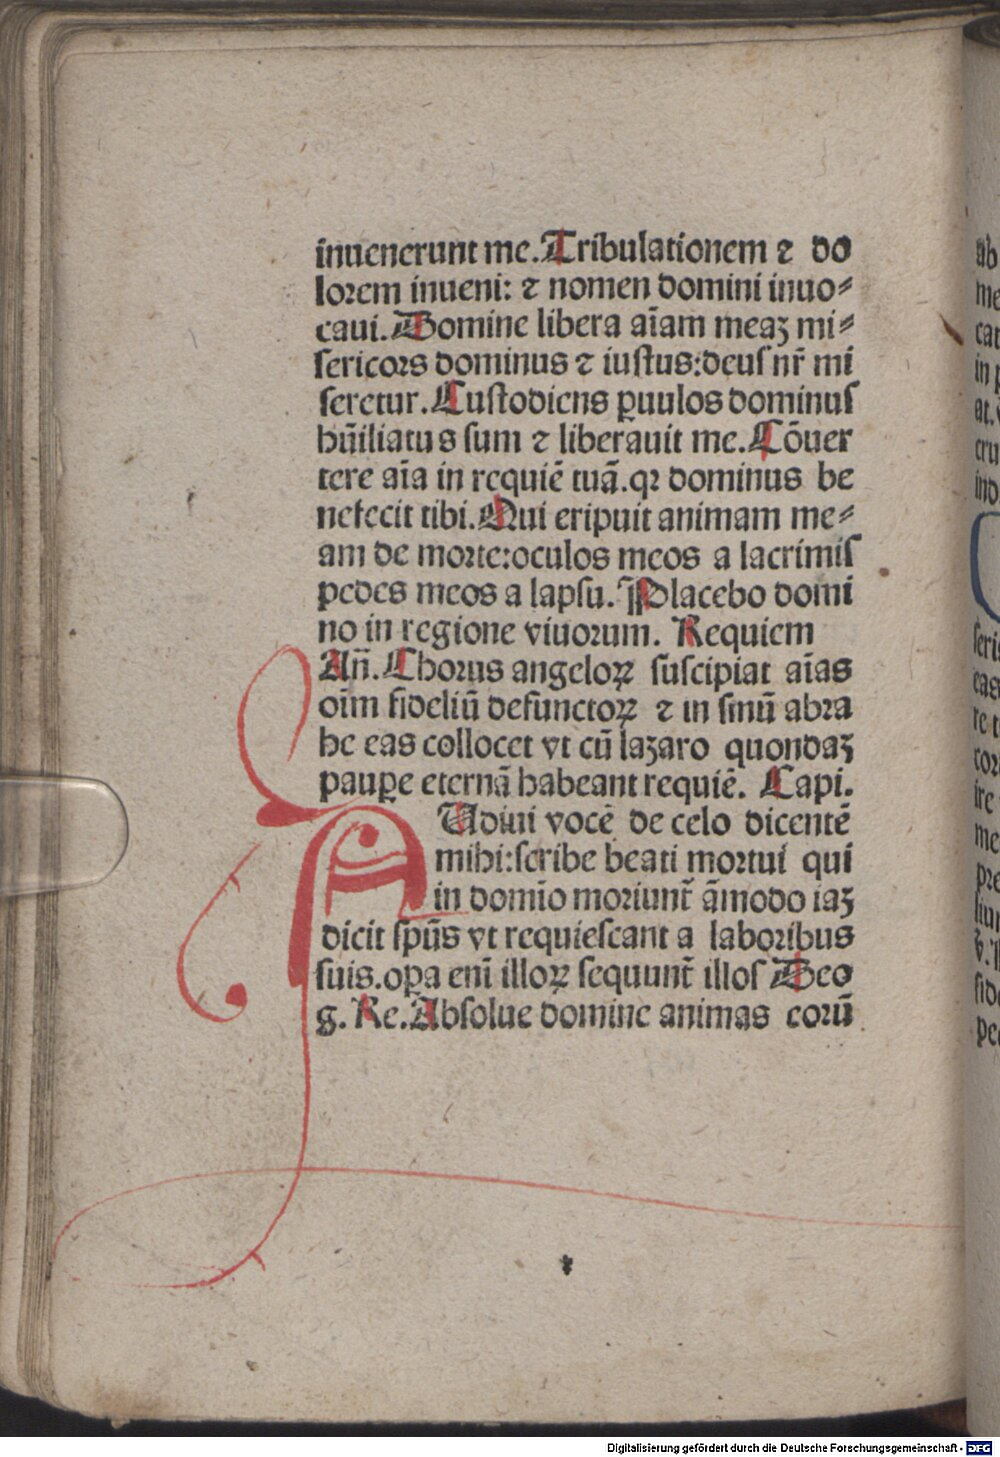 inuenerunt me. Tribulationem ⁊ do
lorem inueni: ⁊ nomen domini inuo⸗
caui. Domine libera aīam meaꝫ mi⸗
sericors dominus ⁊ iustus: deus nr̄ mi
seretur. Custodiens ꝑuulos dominus
hūiliatus sum ⁊ liberauit me. Cōuer
tere aīa in requiē tuā. qꝛ dominus be
nefecit tibi. Qui eripuit animam me⸗
am de morte: oculos meos a lacrimis
pedes meos a lapsu. Placebo domi
no in regione viuorum. Requiem
An̄. Chorus angeloꝝ suscipiat aīas
oīm fideliū defunctoꝝ ⁊ in sinū abra
he eas collocet vt cū lazaro quondaꝫ
pauꝑe eternā habeant requiē. Capi.
AUdiui vocē de celo dicentē
mihi: scribe beati mortui qui
in domīo moriunt̄ āmodo iaꝫ
dicit spūs vt requiescant a laboribus
suis. oꝑa enī illoꝝ sequunt̄ illos Deo
g. Re. Absolue domine animas eorū
ab
me
cat
in p
at.
cru
ind
seris
eas
re t
cor
ire
me
pre
fide
pe
Digitalisierung gefördert durch die Deutsche Forschungsgemeinschaft - DFG